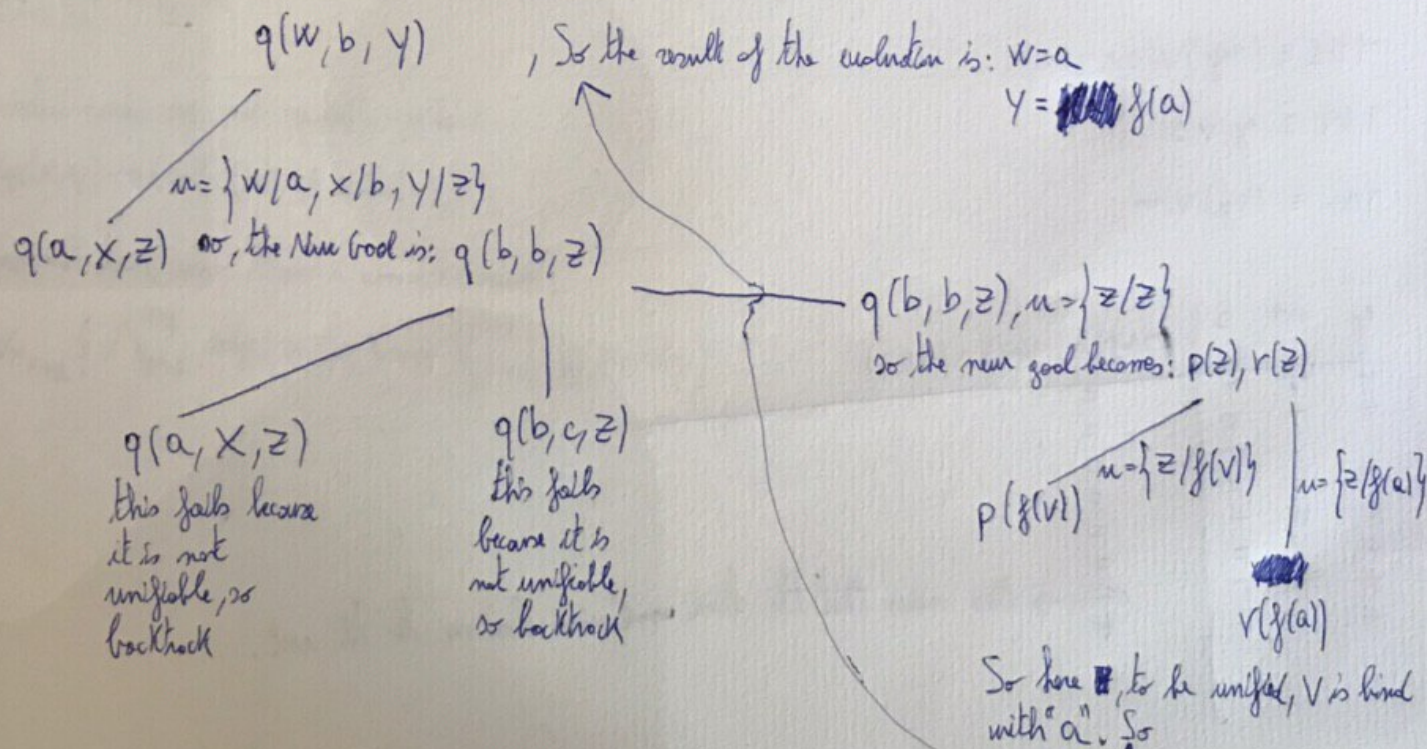 q(W, b, Y) , So the result of the evaluation is: W=a
Y = f(a)
u={W/a, X/b, Y/Z}
q(a, X, Z) so, the New Goal is: q(b, b, Z)
q(b, b, Z), u={Z/Z}
so the new goal becomes: p(Z), r(Z)
q(a, X, Z)
this fails because
it is not
unifiable, so
backtrack
q(b, c, Z)
this fails
because it is
not unifiable,
so backtrack
u={Z/f(V)}
p(f(V))
u={Z/f(a)}
r(f(a))
So here, to be unified, V is bind
with "a". So